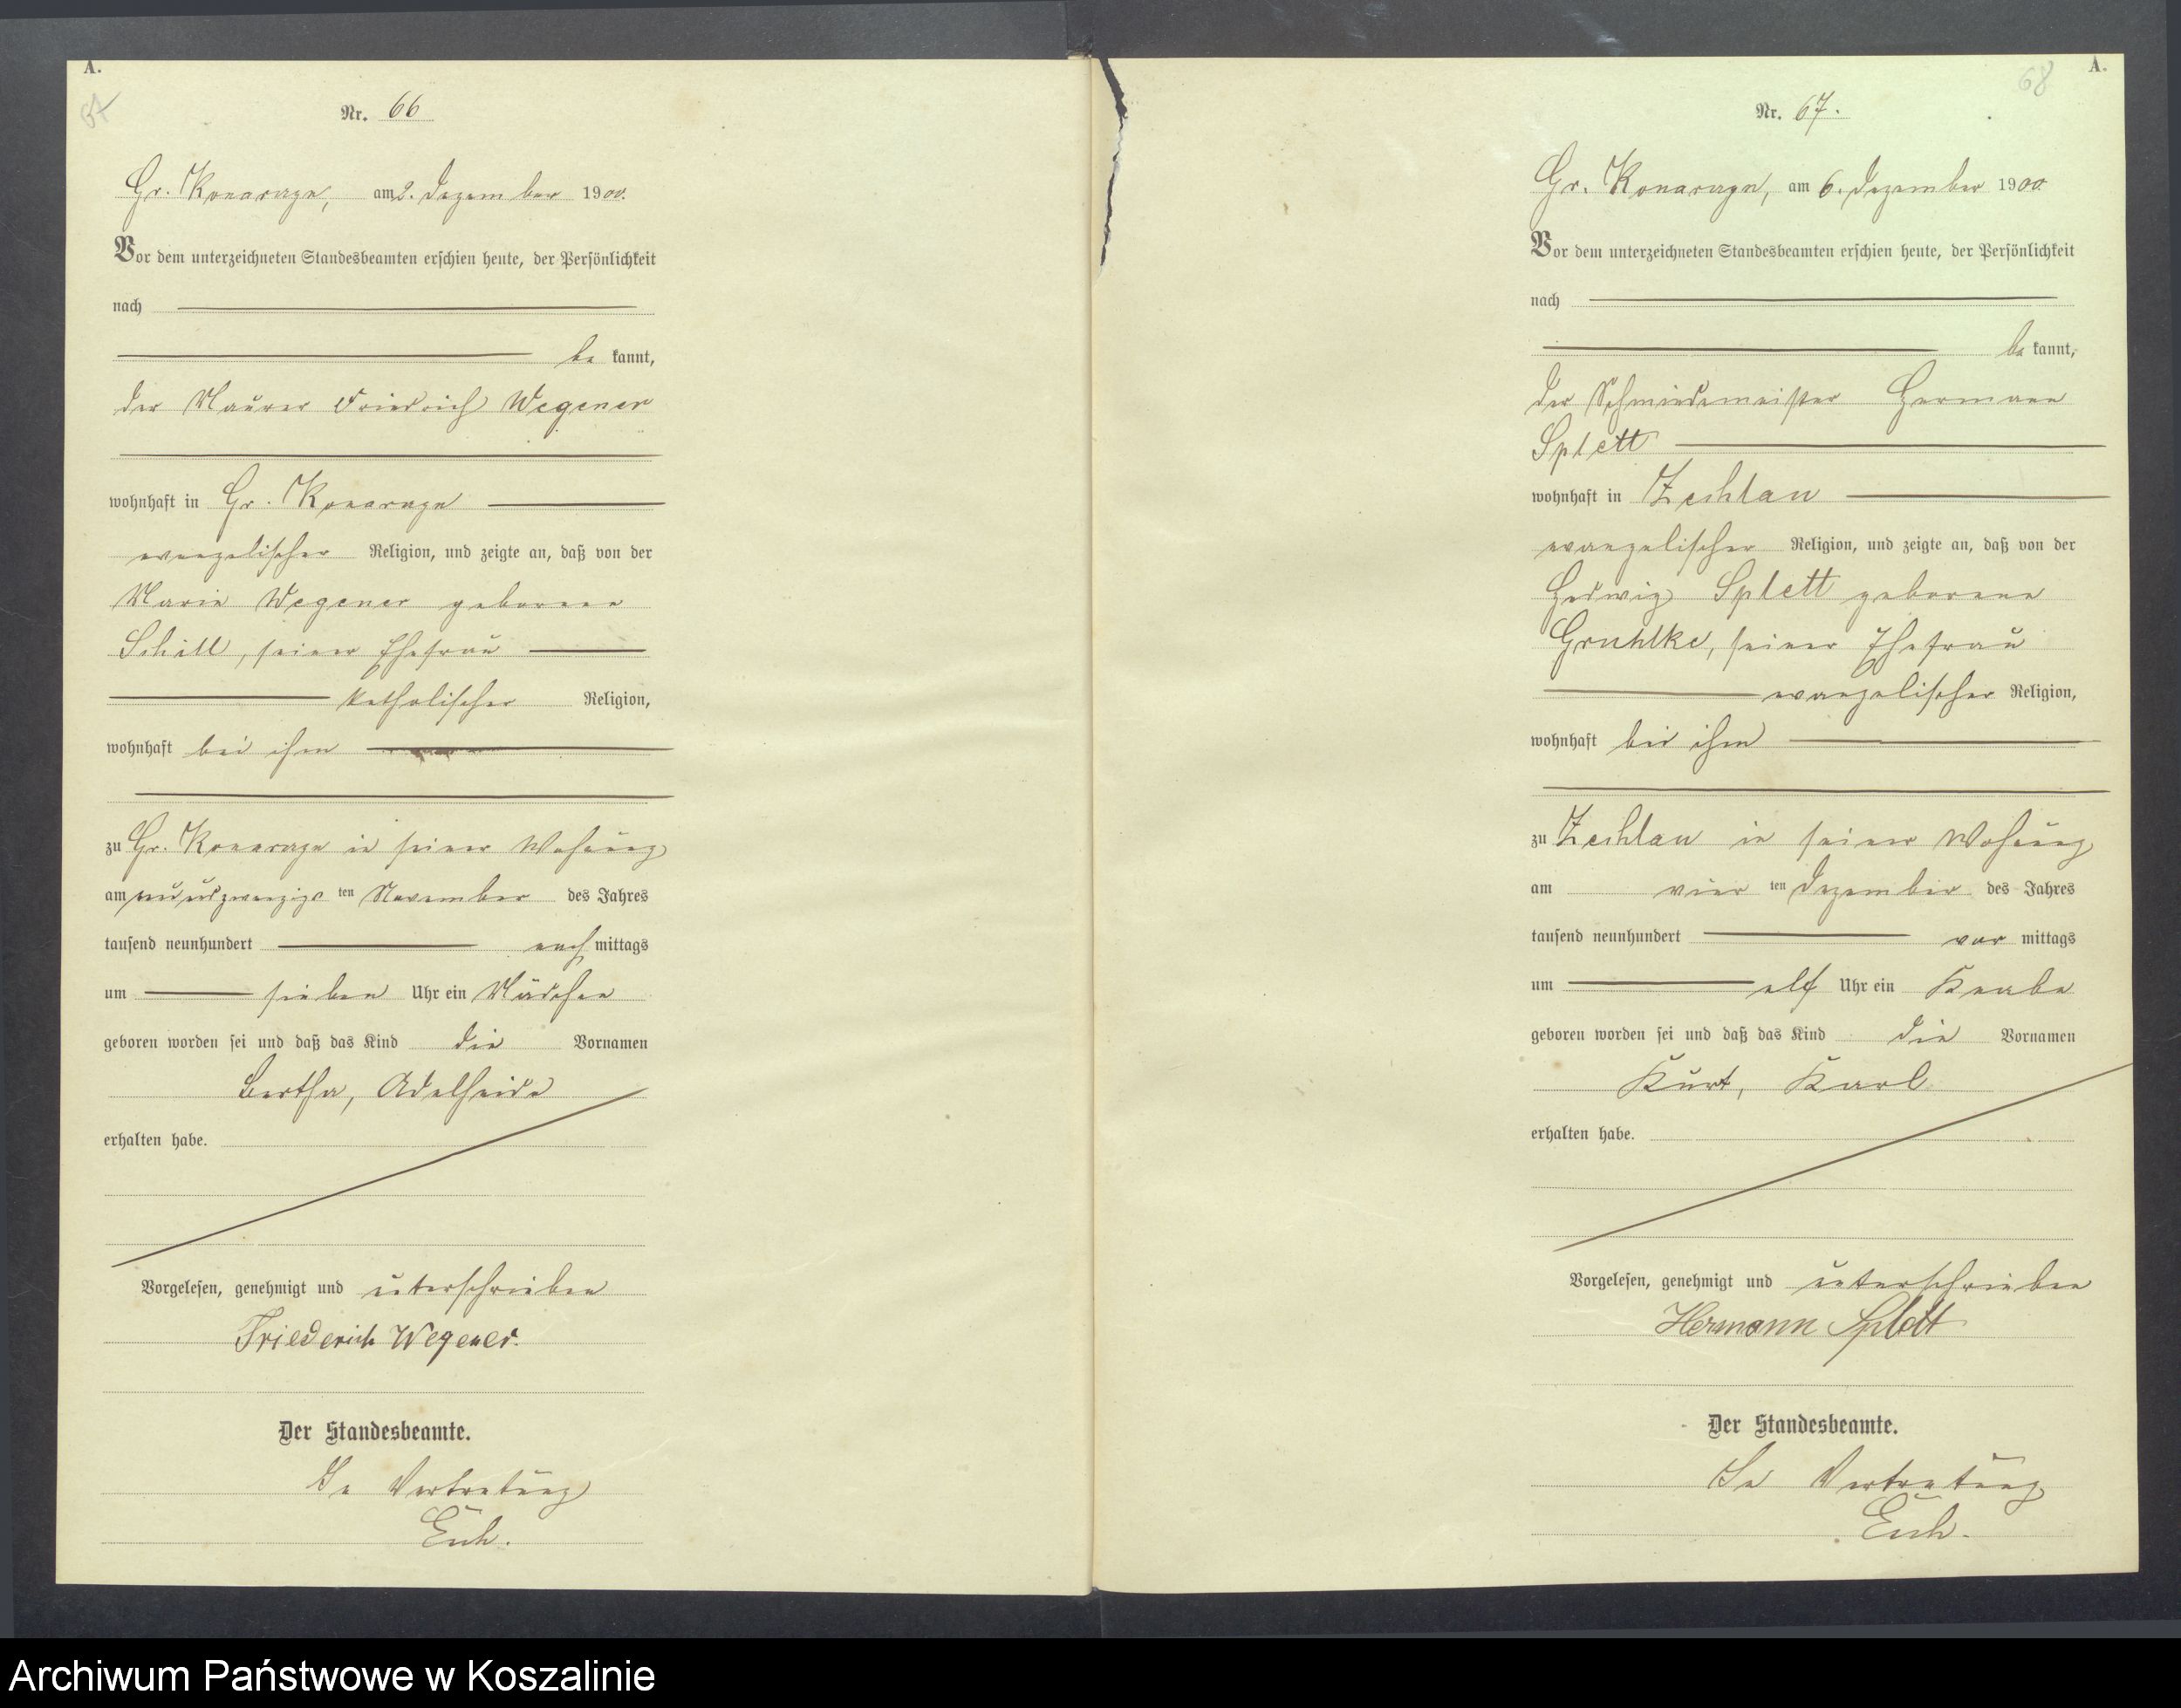 A.
67
Nr. 66
Gr. Konarzyn, am 2. Dezember 1900.
Vor dem unterzeichneten Standesbeamten erschien heute, der Persönlichkeit
nach
be kannt,
der Maurer Friedrich Wegener
wohnhaft in Gr. Konarzyn
evangelischer Religion, und zeigte an, daß von der
Marie Wegener geborene
Schill, seiner Ehefrau
katholischer Religion,
wohnhaft bei ihm
zu Gr. Konarzyn in seiner Wohnung
am ten November des Jahres
tausend neunhundert nach mittags
um sieben Uhr ein Mädchen
geboren worden sei und daß das Kind die Vornamen
Bertha, Adelheide
erhalten habe.
Vorgelesen, genehmigt und unterschrieben
Friederich Wegener.
Der Standesbeamte.
In Vertretung
68
A.
Nr. 67.
Gr. Konarzyn, am 6. Dezember 1900
Vor dem unterzeichneten Standesbeamten erschien heute, der Persönlichkeit
nach
be kannt,
der Schmiedemeister Hermann
Splett
wohnhaft in Zechlau
evangelischer Religion, und zeigte an, daß von der
Hedwig Splett geborene
Gruhlke, seiner Ehefrau
evangelischer Religion,
wohnhaft bei ihm
zu Zechlau in seiner Wohnung
am vier ten Dezember des Jahres
tausend neunhundert vor mittags
um elf Uhr ein Knabe
geboren worden sei und daß das Kind die Vornamen
Kurt, Karl
erhalten habe.
Vorgelesen, genehmigt und unterschrieben
Hermann Splett
Der Standesbeamte.
In Vertretung
Archiwum Państwowe w Koszalinie